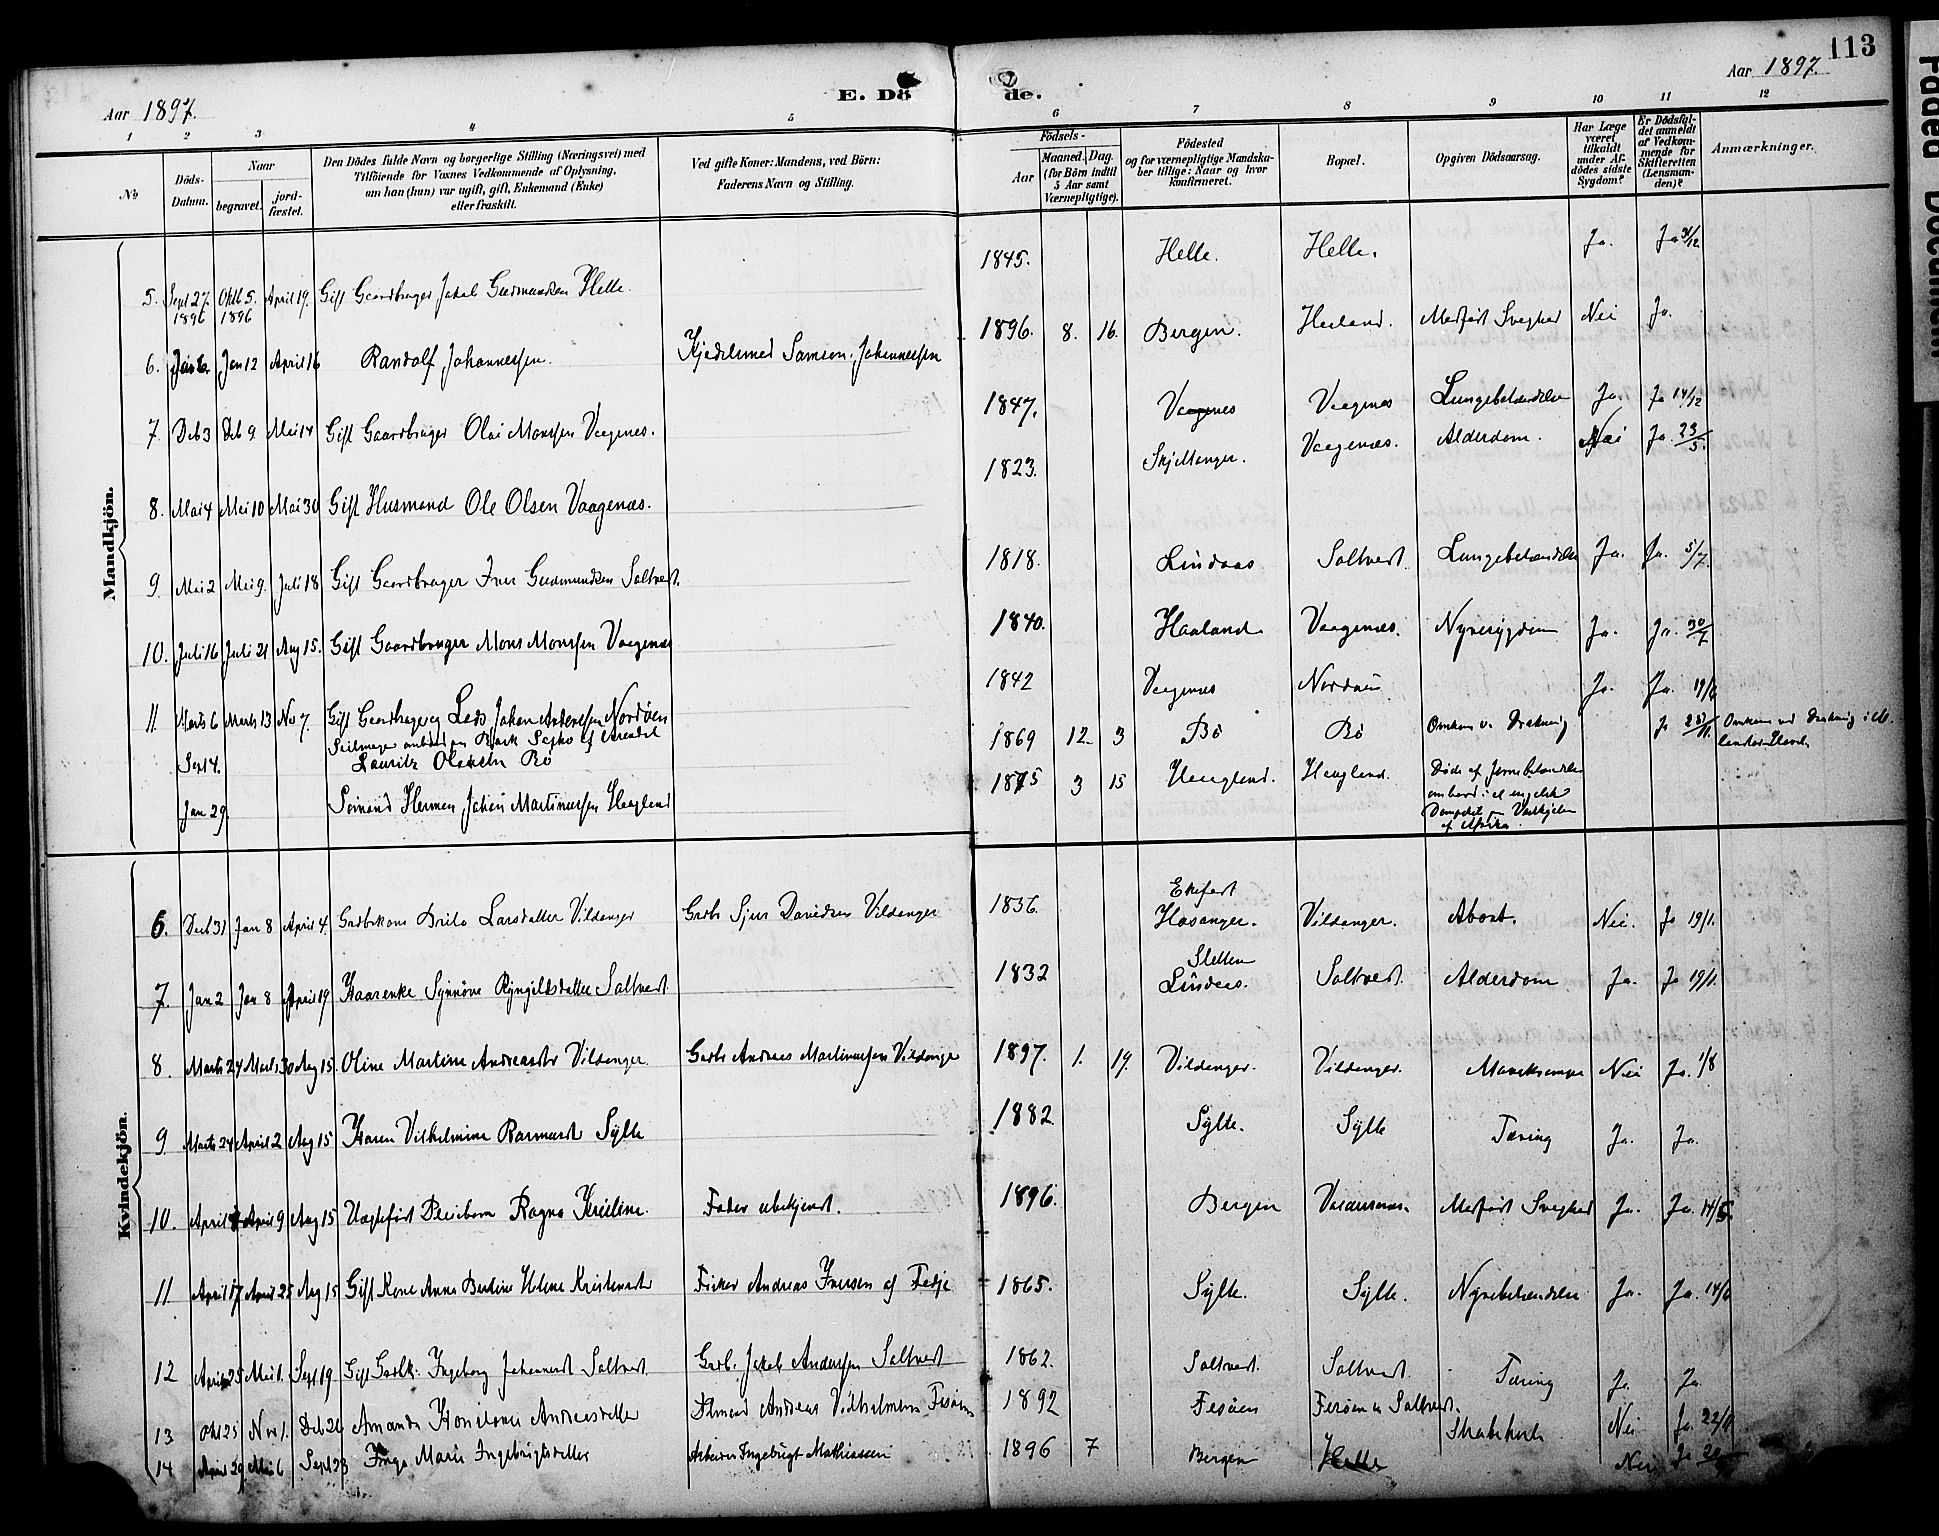 113
Aar 1897.
E. Dö de.
Aar 1897.
1 2 3 4 5 6 7 8 9 10 11 12
No
Döds-Datum.
Naar
begravet.
jord-fæstet.
Den Dödes fulde Navn og borgerlige Stilling (Næringsvei) med
Tilföiende for Voxnes Vedkommende af Oplysning,
om han (hun) var ugift, gift, Enkemand (Enke)
eller fraskilt.
Ved gifte Koner: Mandens, ved Börn:
Faderens Navn og Stilling.
Födsels-
Aar
Maaned. Dag.
(for Börn indtil
5 Aar samt
Værnepligtige).
Födested
og for værnepligtige Mandska-
ber tillige: Naar og hvor
konfirmeret.
Bopæl.
Opgiven Dödsaarsag.
Har Læge
været
tilkaldt
under Af-
dödes sidste
Sygdom?
Er Dödsfal-
det anmeldt
af Vedkom-
mende for
Skifteretten
(Lensman-
den)?
Anmærkninger.
Mandkjön.
5. Sept 27. 1896 Oktb 5. 1896 April 19. Gift Gaardbruger Jakob Gudmundsen Helle. 1845. Helle. Helle. Ja. Ja 31/12
6. Jan 6. Jan 12 April 16 Randolf Johannessen. Kjedelsmed Samson Johannessen 1896. 8. 16. Bergen. Heiland. Medfødt Svaghed Nei Ja.
7. Deb 3 Deb 9. Mai 14 Gift Gaardbruger Olai Monssen Vaagenes. 1847. Vaagenes Vaagenes Lungebetændelse Ja. Ja 14/12
8. Mai 4 Mai 10 Mai 30 Gift Husmand Ole Olsen Vaagenæs. 1823. Skjellanger. Vaagenæs. Alderdom. Nei Ja. 23/5.
9. Mai 2 Mai 9. Juli 18 Gift Gaardbruger Iver Gudmundsen Saltvedt. 1818. Lindaas Saltvedt. Lungebetændelse Ja. Ja. 5/7.
10. Juli 16 Juli 21 Aug 15. Gift Gaardbruger Mons Monssen Vaagenæs 1840. Haaland Vaagenæs. Nyresygdom Ja. Ja. 30/7
11. Marts 6 Marts 13 Nov 7. Gift Gaardbruger Lods Johan Andersen Nordøen 1842 Vaagenes Nordøen Ja. Ja. 19/6
Sept 4. Seilmager ombord paa Bark af Arendal
Lauritz Olai Bø 1869 12. 3 Bø Bø Omkom v. Drukning Ja Omkom ved Drukning
Jan 29. Sømand Herman Johan Martinussen Haugland 1875 3 15 Haugland. Haugland. Døde af
ombord i et engelsk
Dampskib paa Vestkysten
af Afrika.
Kvindekjön.
6. Deb 31 Jan 8 April 4. Gaardbkone Brita Larsdatter Vildanger Gaardb Sjur Davidsen Vildanger 1836. Hosanger. Vildanger. Abort. Nei. Ja 19/1.
7. Jan 2 Jan 8 April 19 Kaarenke Synnøve Saltvedt 1832 Sletten Lindaas. Saltvedt. Alderdom Ja. Ja 19/1.
8. Marts 24 Marts 30 Aug 15. Oline Martine Andreasdtr Vildanger. Gaardb Andreas Martinussen Vildanger 1897. 1. 19. Vildanger. Vildanger. Mavekrampe Nei Ja. 1/8
9 Marts 24 April 2 Aug 15 Karen Vilhelmine Rasmusdt Sylte 1882 Sylte. Sylte Tæring Ja. Ja.
10. April April 9 Aug 15 Uægtefødt Pleiebarn Ragna Kristine. Fader ubekjendt. 1896. Bergen Medfødt Svaghed Ja. Ja. 14/5.
11 April 17 April 25 Aug 15 Gift Kone Anne Bertine Helene Kristensdt Fisker Andreas Iversen af Fedje 1865. Sylte. Sylte. Nyrebetændelse Ja. Ja. 14/6
12 April 25 Mai 1. Sept 19 Gift Gaardbk. Ingeborg Johannesdt Saltvedt Gaardb. Jakob Andersen Saltvedt 1862. Saltvedt. Saltvedt. Tæring Ja. Ja
13 Okt 25 Nov 1. Deb 26 Amanda Andreasdatter Andreas Vilhelmsen Fesøen 1892 Fesøen Fesøen Saltvedt. Strubehoste Nei Ja. 22/11
14 April 29 Mai 6 Sept 23 Inga Marie Ingebrigtsdatter Arbeider Ingebrigt Mathiassen 1896 7 Bergen Helle Nei Ja
Faded Document